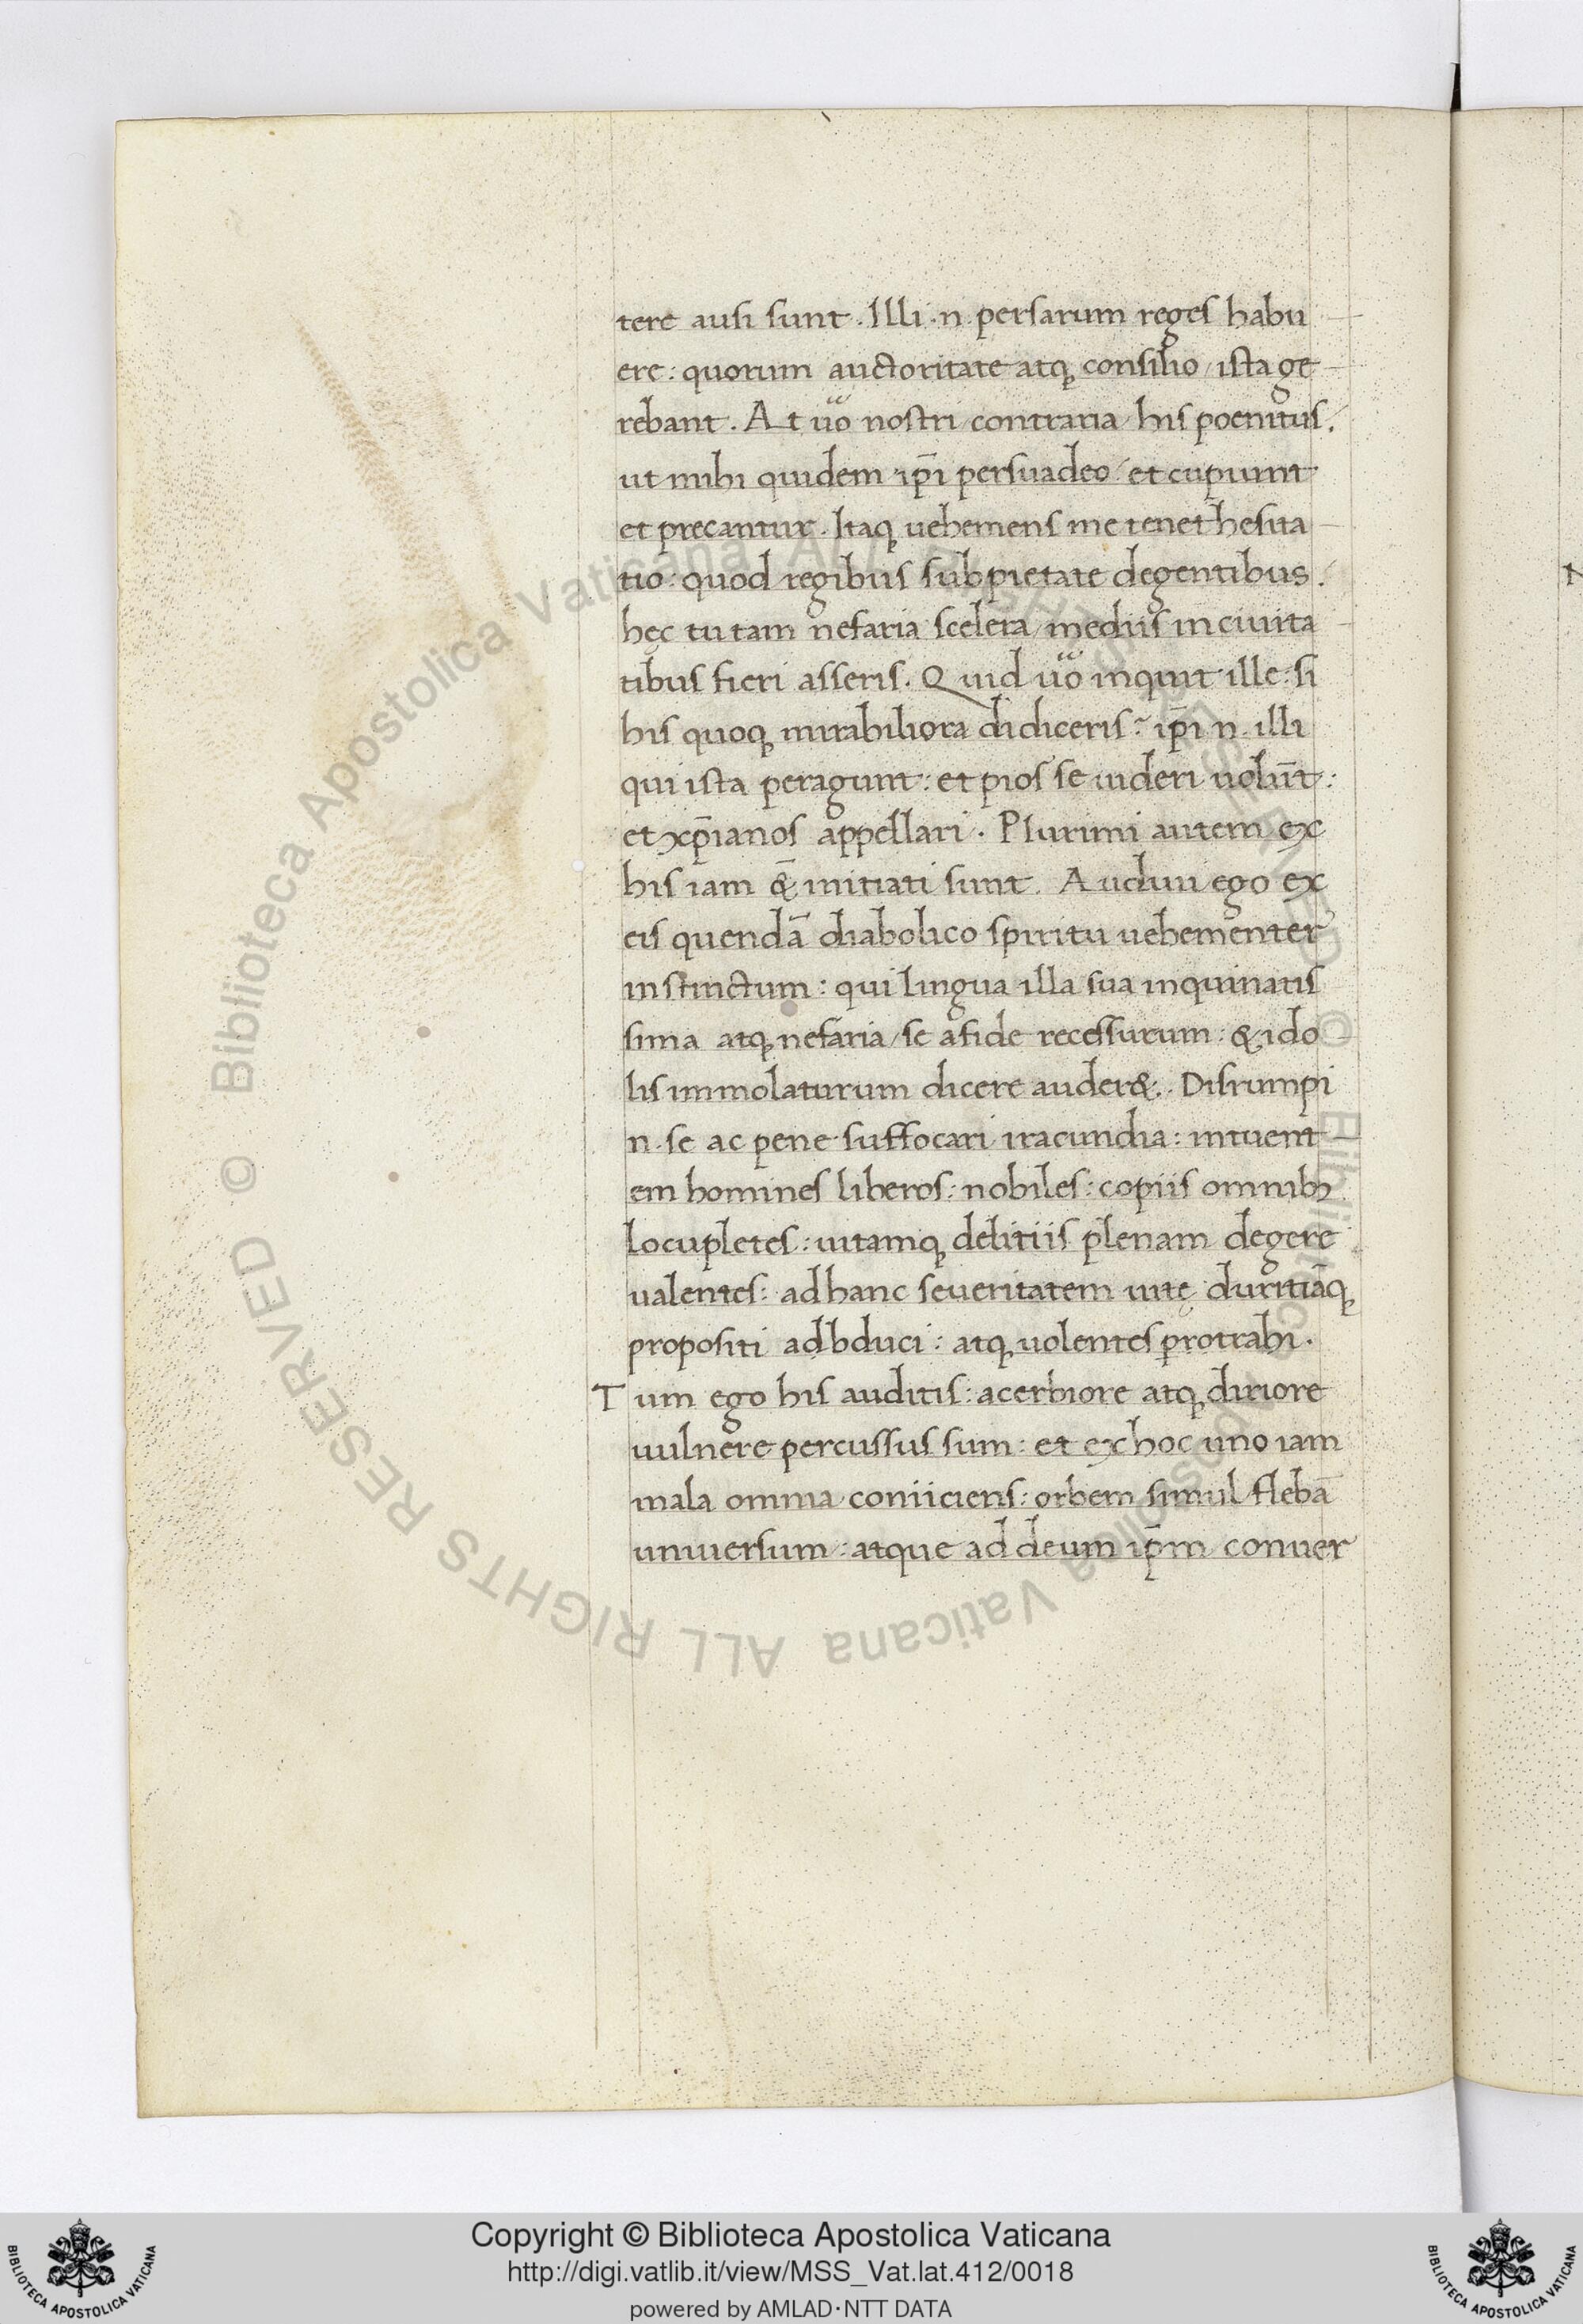 tere ausi sunt. Illi .n. persarum reges habu
ere: quorum auctoritate atq; consilio / ista ge
rebant. At uo nostri contraria his poenitus.
ut mihi quidem ip̄i persuadeo et cupiunt
et precantur. Itaq; uehemens me tenet hesita
tio: quod regibus sub pietate degentibus.
hęc tu tam nefaria scelera / mediis in ciuita
tibus fieri asseris. Quid uo inquit ille: si
his quoq; mirabiliora didiceris? ip̄i .n. illi
qui ista peragunt: et pios se uideri uolūt:
et xp̄ianos appellari. Plurimi autem ex
his iam & initiati sunt. Audiui ego ex
eis quendā diabolico spiritu uehementer
instinctum: qui lingua illa sua inquinatis
sima atq; nefaria / se a fide recessurum: & ido
lis immolaturum dicere auder&. Disrumpi
.n. se ac pene suffocari iracundia: intuent
em homines liberos: nobiles: copiis omnib;
locupletes: uitamq; delitiis plenam degere
ualentes: ad hanc seueritatem uitę duritiāq;
propositi adbduci: atq; uolentes protrahi.
Tum ego his auditis: acerbiore atq; diriore
uulnere percussus sum: et ex hoc uno iam
mala omnia coniiciens: orbem simul flebā
uniuersum: atque ad deum ip̄m conuer
Copyright © Biblioteca Apostolica Vaticana
http://digi.vatlib.it/view/MSS_Vat.lat.412/0018
powered by AMLAD·NTT DATA
BIBLIOTECA APOSTOLICA VATICANA
BIBLIOTECA APOSTOLICA VATICANA
© Biblioteca Apostolica Vaticana ALL RIGHTS RESERVED
© Biblioteca Apostolica Vaticana ALL RIGHTS RESERVED